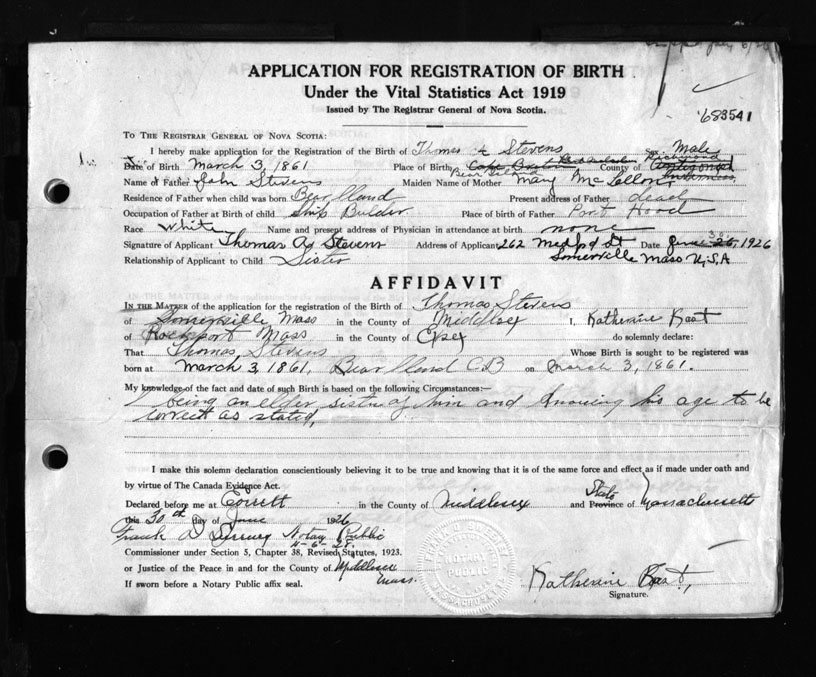 APPLICATION FOR REGISTRATION OF BIRTH
Under the Vital Statistics Act 1919
Issued by The Registrar General of Nova Scotia.
683541
TO THE REGISTRAR GENERAL OF NOVA SCOTIA:
I hereby make application for the Registration of the Birth of Thomas A Stevens Sex Male
Richmond
Date of Birth March 3, 1861 Place of Birth County of
Bear Island
Name of Father John Stevens Maiden Name of Mother Mary
Residence of Father when child was born Bear Iland Present address of Father dead
Occupation of Father at Birth of child Ship Bulder Place of birth of Father Port Hood
Race White Name and present address of Physician in attendance at birth none
Signature of Applicant Thomas A Stevens Address of Applicant 262 Medford St Date June 1926
Relationship of Applicant to Child Sister Somerville Mass U,S,A
AFFIDAVIT
IN THE MATTER of the application for the registration of the Birth of Thomas Stevens
of Mass in the County of I, Katherine
of Rockport Mass in the County of do solemnly declare:
That Thomas Stevens Whose Birth is sought to be registered was
born at March 3, 1861, Bear Iland C.B on March 3, 1861.
My knowledge of the fact and date of such Birth is based on the following Circumstances:—
I being an elder sister of him and knowing his age to be
correct as stated,
I make this solemn declaration conscientiously believing it to be true and knowing that it is of the same force and effect as if made under oath and
by virtue of The Canada Evidence Act.
State
Declared before me at in the County of Middlesex and Province of Massachusetts
this 30th day of June 1926
Frank Notary Public
Commissioner under Section 5, Chapter 38, Revised Statutes, 1923.
or Justice of the Peace in and for the County of Middlesex
Mass.
If sworn before a Notary Public affix seal.
NOTARY
PUBLIC
Katherine
Signature.